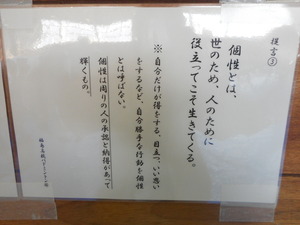 提言③
個性とは、
世のため、人のために
役立ってこそ生きてくる。
※自分だけが得をする、目立つ、いい思い
をするなど、自分勝手な行動を個性
とは呼ばない。
個性は周りの人の承認と納得があって
輝くもの。